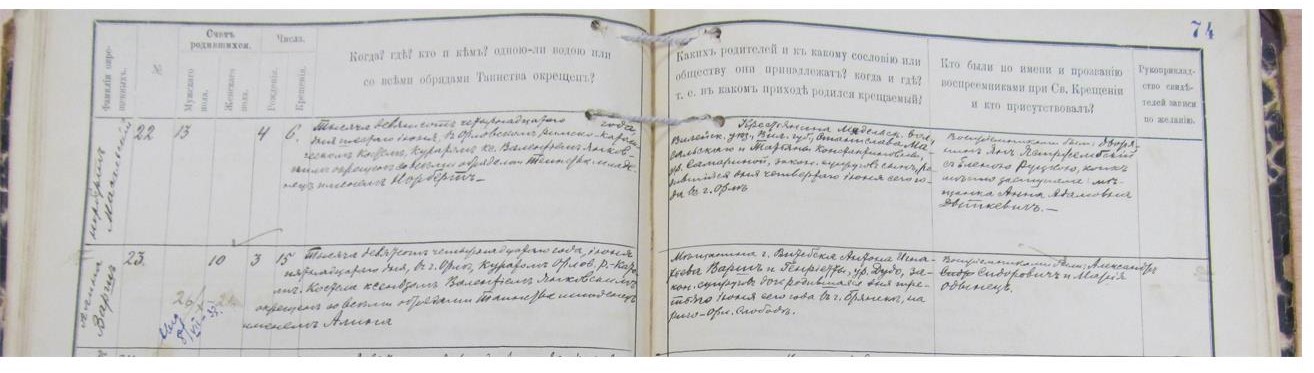 74
Фамиліи окрещенныхъ.
№
Счетъ родившихся.
Мужскаго пола.
Женскаго пола.
Числа.
Рожденія.
Крещенія.
Когда? гдѣ? кто и кѣмъ? одною-ли водою или
со всѣми обрядами Таинства окрещенъ?
Какихъ родителей и къ какому сословію или
обществу они принадлежатъ? когда и гдѣ?
т. е. въ какомъ приходѣ родился крещаемый?
Кто были по имени и прозванію
воспреемниками при Св. Крещеніи
и кто присутствовалъ?
Рукоприклад-
ство свидѣ-
телей записи
по желанію.
Норбертъ
22
13
4
6
Тысяча девятьсотъ четырнадцатаго года,
іюня дня, въ Орловскомъ римско-католи-
ческомъ костелѣ, куратомъ кс. Валентіемъ
окрещенъ со всѣми обрядами Таинства младе-
нецъ именемъ Норбертъ
Крестьянина Мядельск. вол.,
Вилейск. уѣз., Вил. губ., Станислава
и Марьяны
закон. супруговъ сынъ, ро-
дившійся дня четвертаго іюня сего го-
да въ г. Орлѣ
Воспріемниками были: дворя-
нинъ Янъ
съ Еленою Руцкою,
заступила мѣ-
щанка Анна Адамовна
Дѣткевичъ.
Алина
Варшъ
23.
10
3
15
Тысяча девятсотъ четырнадцатаго года, іюня
пятнадцатаго дня, въ г. Орлѣ, куратомъ Орлов. Р.-Като-
лич. костела ксендзомъ Валентіемъ
окрещена со всѣми обрядами Таинства младенецъ
именемъ Алина
Мѣщанина г. Витебска Антона Игна-
тьева Варшъ и Генріетты, ур. Дудо, за-
кон. супруговъ дочь родившаяся дня тре-
тьяго іюня сего года въ г. Брянскѣ, на
Риго-Орл. слободѣ.
Воспріемниками были: Александръ
Сидоровичъ и Марія
Одынецъ.